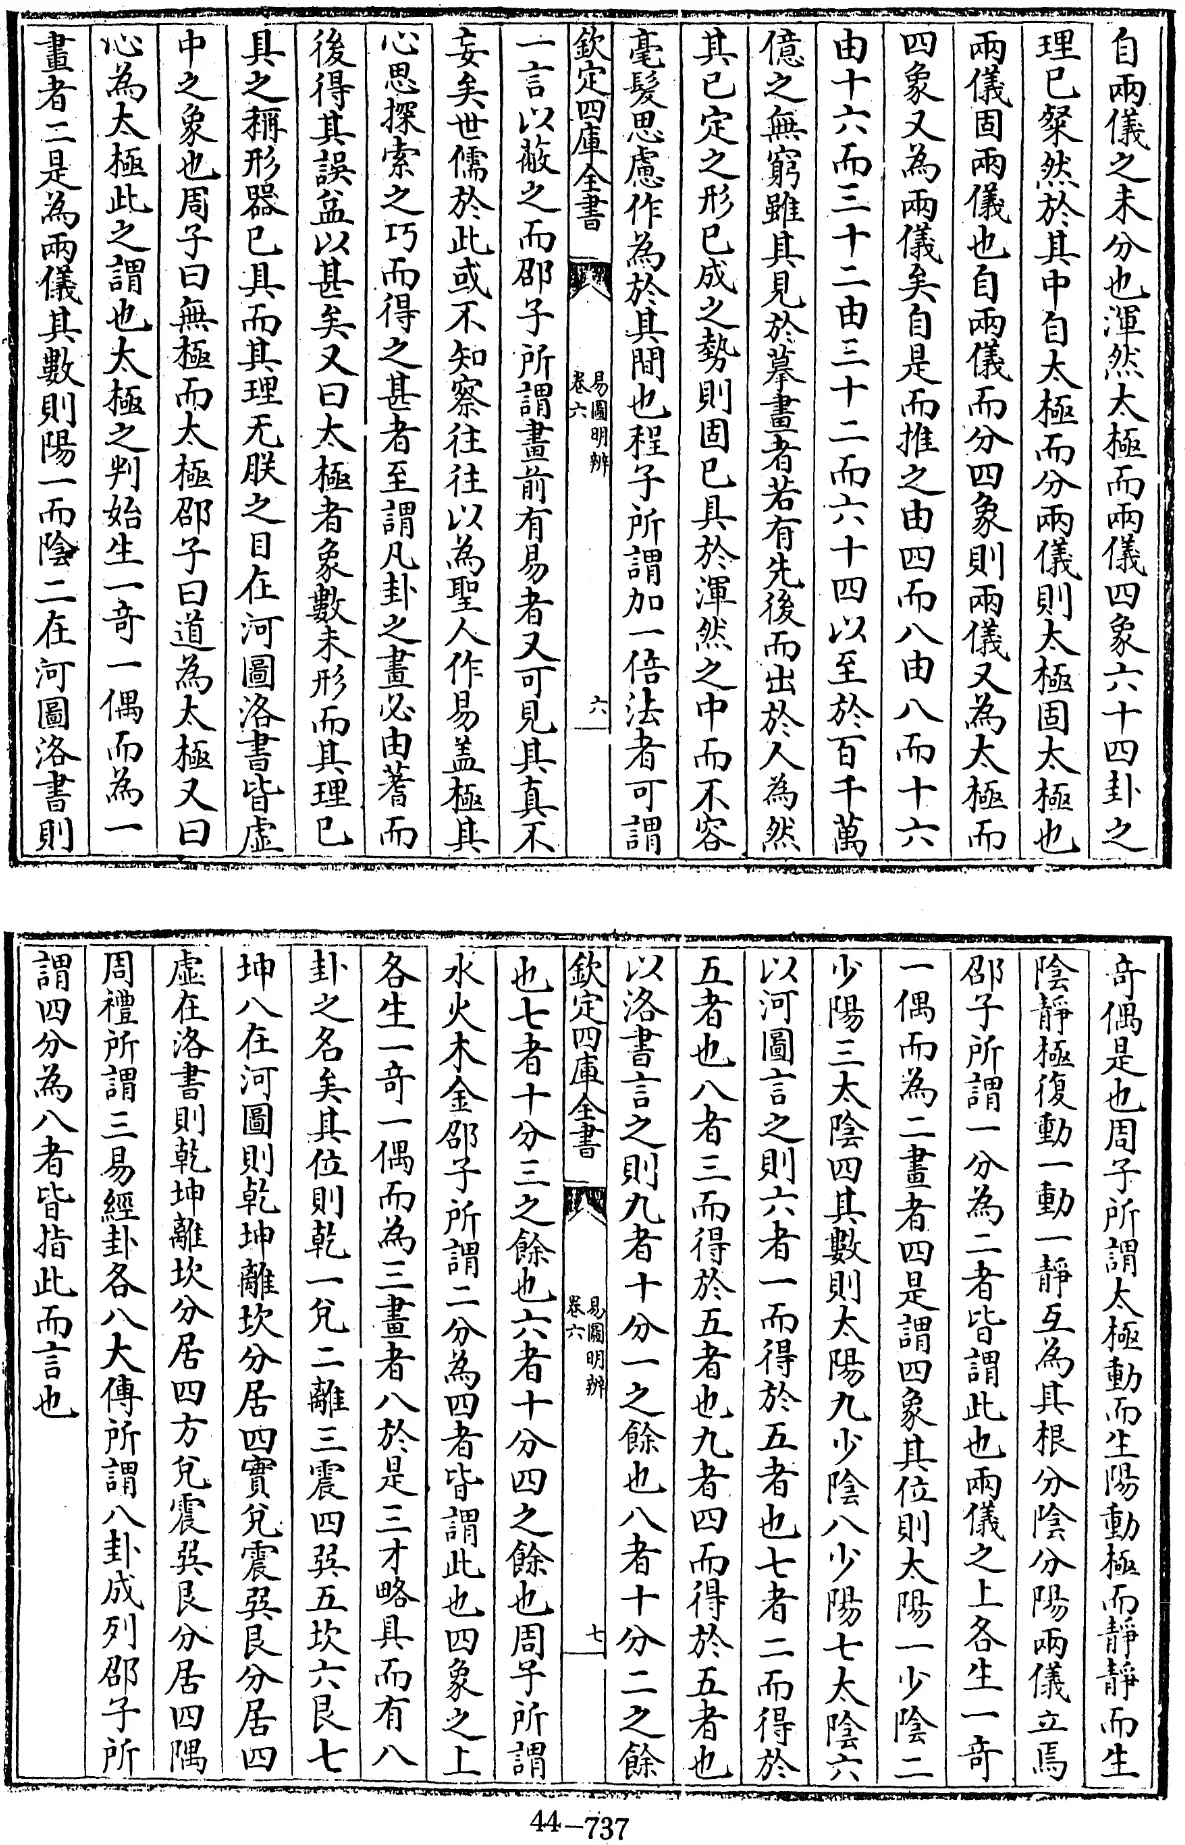 自兩儀之未分也渾然太極而兩儀四象六十四卦之
理已粲然於其中自太極而分兩儀則太極固太極也
兩儀固兩儀也自兩儀而分四象則兩儀又為太極而
四象又為兩儀矣自是而推之由四而八由八而十六
由十六而三十二由三十二而六十四以至於百千萬
億之無窮雖其見於摹畫者若有先後而出於人為然
其已定之形已成之勢則固已具於渾然之中而不容
毫髮思慮作為於其間也程子所謂加一倍法者可謂
欽定四庫全書
易圖明辨
卷六
六
一言以蔽之而邵子所謂畫前有易者又可見其真不
妄矣世儒於此或不知察往往以為聖人作易蓋極其
心思探索之巧而得之甚者至謂凡卦之畫必由蓍而
後得其誤益以甚矣又曰太極者象數未形而其理已
具之稱形器已具而其理无朕之目在河圖洛書皆虛
中之象也周子曰無極而太極邵子曰道為太極又曰
心為太極此之謂也太極之判始生一奇一偶而為一
畫者二是為兩儀其數則陽一而陰二在河圖洛書則
奇偶是也周子所謂太極動而生陽動極而靜靜而生
陰靜極復動一動一靜互為其根分陰分陽兩儀立焉
邵子所謂一分為二者皆謂此也兩儀之上各生一奇
一偶而為二畫者四是謂四象其位則太陽一少陰二
少陽三太陰四其數則太陽九少陰八少陽七太陰六
以河圖言之則六者一而得於五者也七者二而得於
五者也八者三而得於五者也九者四而得於五者也
以洛書言之則九者十分一之餘也八者十分二之餘
欽定四庫全書
易圖明辨
卷六
七
也七者十分三之餘也六者十分四之餘也周子所謂
水火木金邵子所謂二分為四者皆謂此也四象之上
各生一奇一偶而為三畫者八於是三才略具而有八
卦之名矣其位則乾一兌二離三震四巽五坎六艮七
坤八在河圖則乾坤離坎分居四實兌震巽艮分居四
虛在洛書則乾坤離坎分居四方兌震巽艮分居四隅
周禮所謂三易經卦各八大傳所謂八卦成列邵子所
謂四分為八者皆指此而言也
44-737